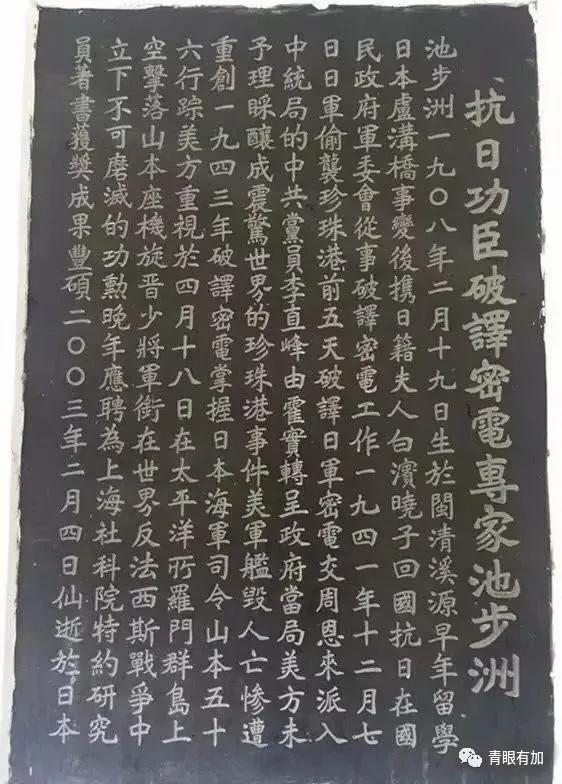 抗日功臣破譯密電專家池步洲
池步洲一九〇八年二月十九日生於閩清溪源早年留學
日本盧溝橋事變後携日籍夫人白濱曉子回國抗日在國
民政府軍委會從事破譯密電工作一九四一年十二月七
日日軍偷襲珍珠港前五天破譯日軍密電交周恩來派入
中統局的中共黨員李直峰由霍實轉呈政府當局美方未
予理睬釀成震驚世界的珍珠港事件美軍艦毀人亡慘遭
重創一九四三年破譯密電掌握日本海軍司令山本五十
六行踪美方重視於四月十八日在太平洋所羅門群島上
空擊落山本座機旋晋少將軍銜在世界反法西斯戰爭中
立下不可磨滅的功勲晚年應聘為上海社科院特約研究
員著書獲獎成果豐碩二〇〇三年二月四日仙逝於日本
青眼有加